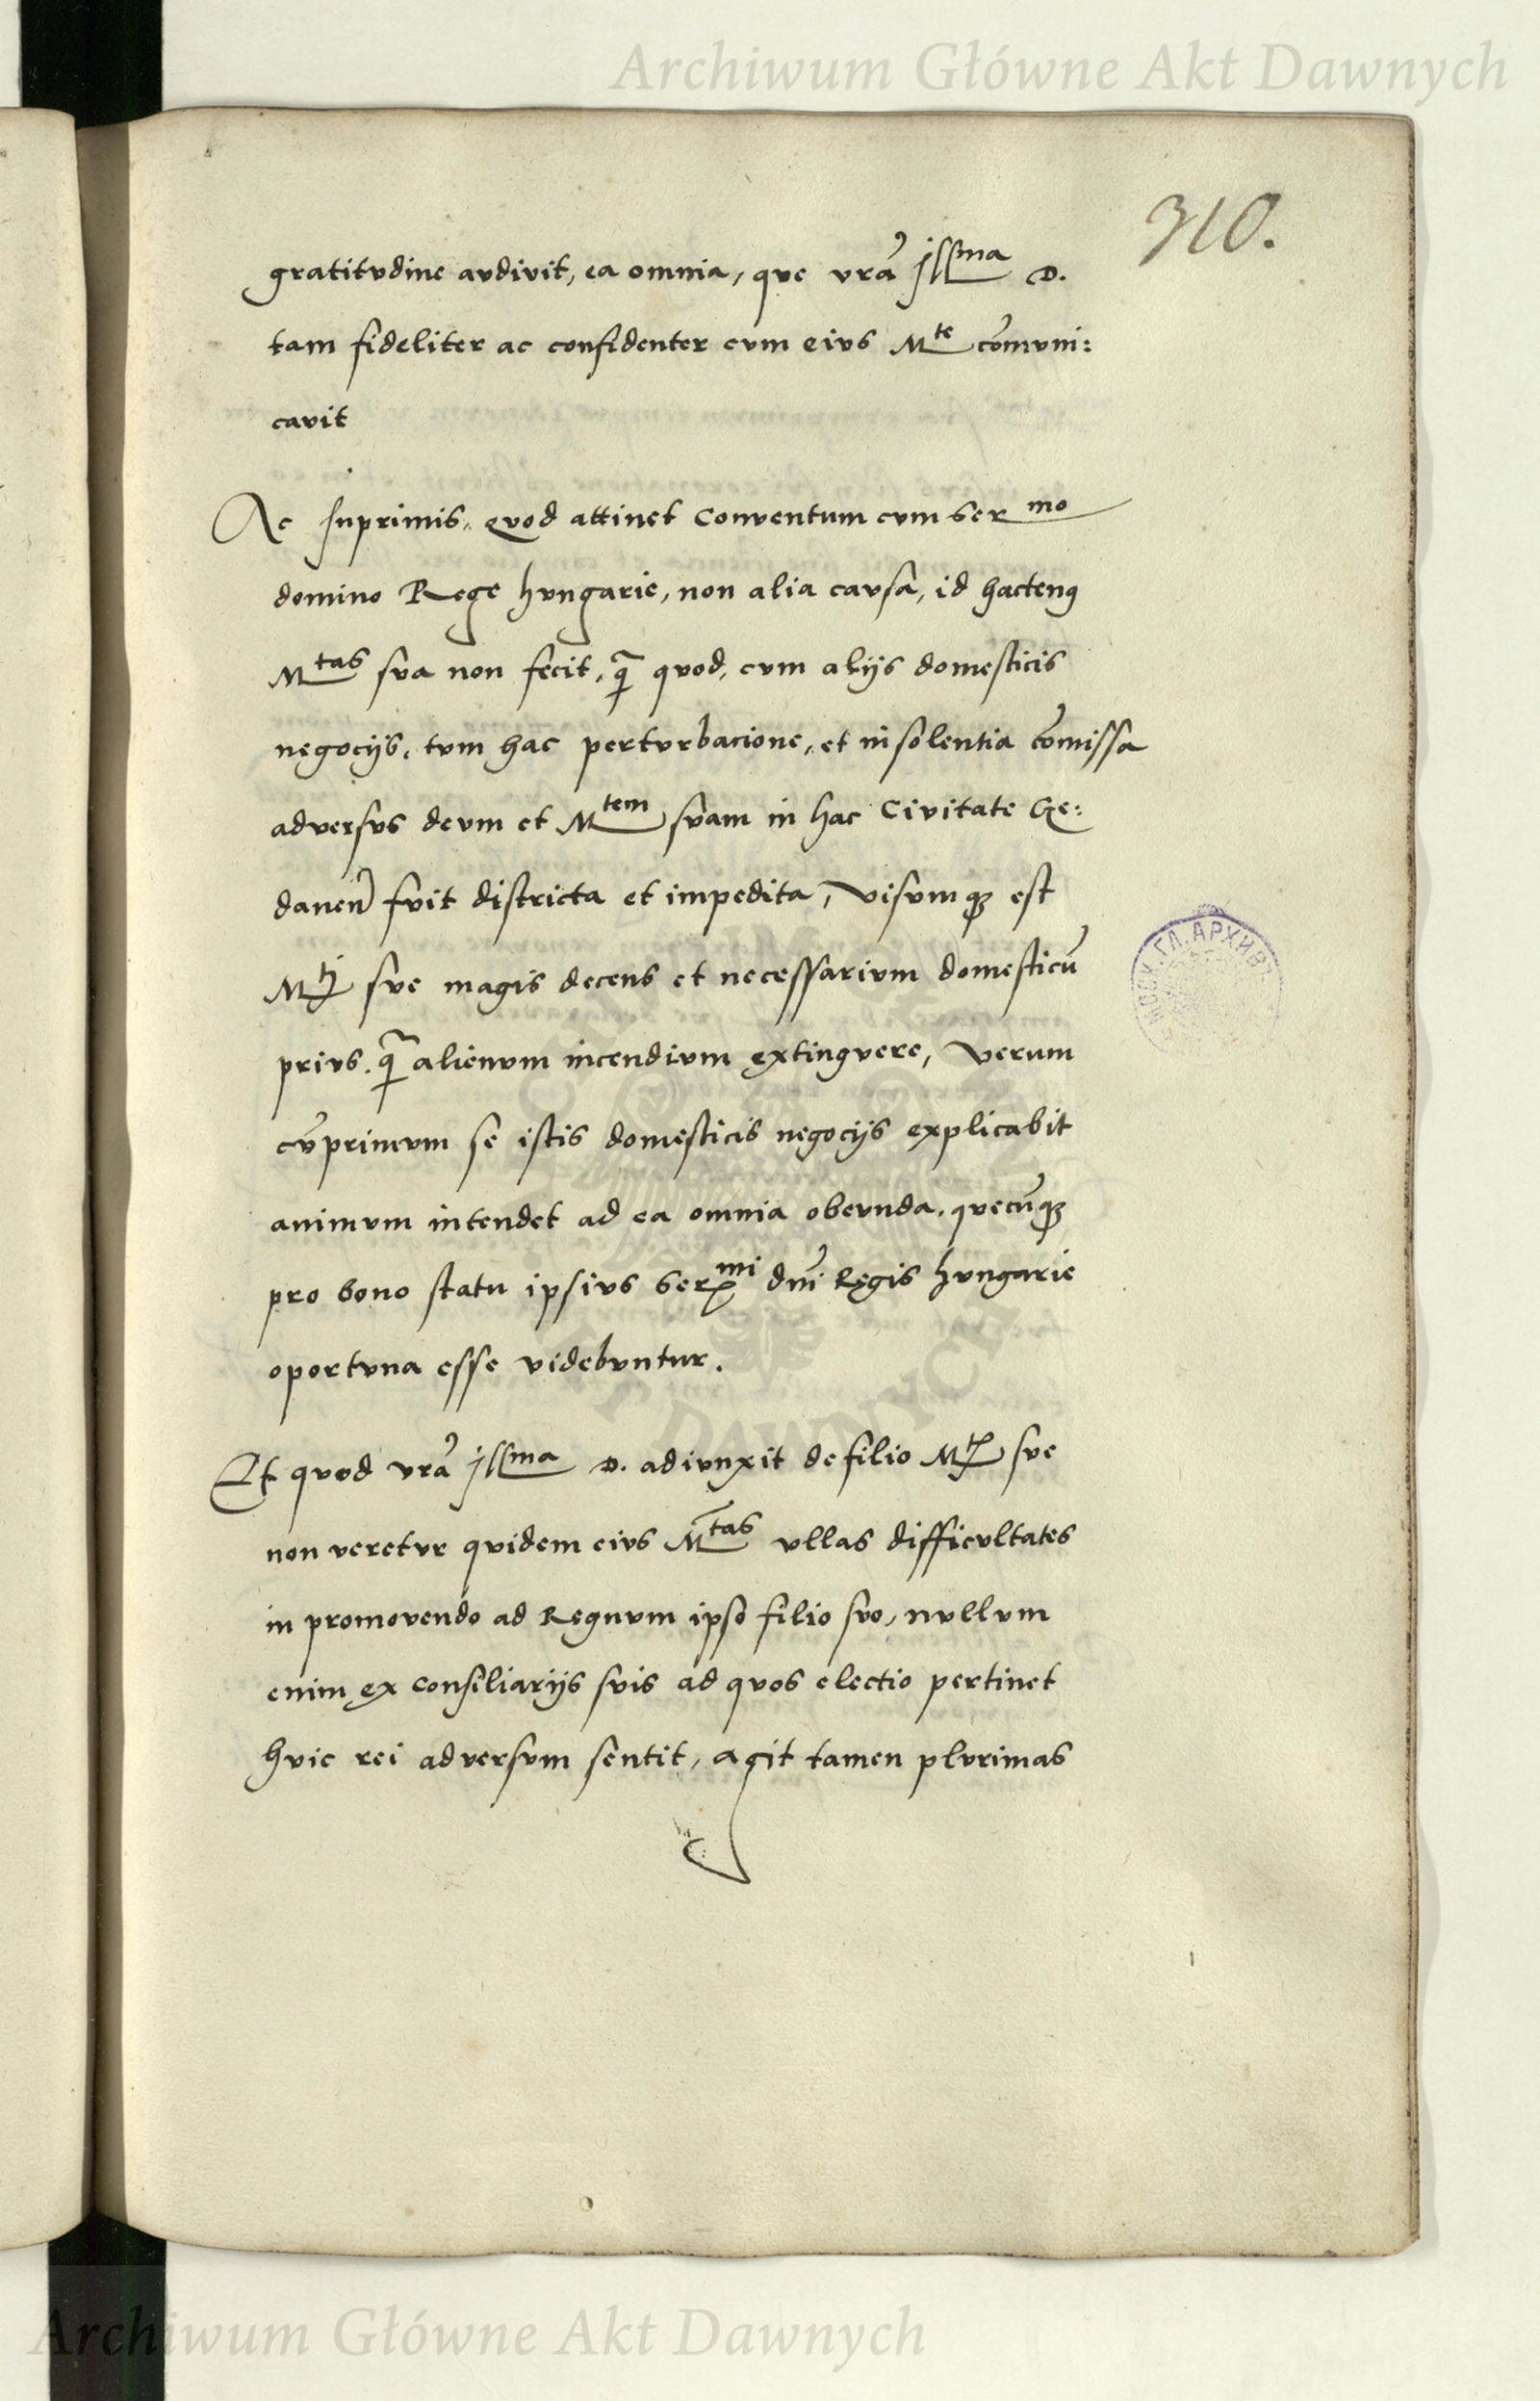 Archiwum Główne Akt Dawnych
310.
gratitvdine avdivit, ea omnia, que vrã jllma D.
tam fideliter ac confidenter cvm eivs Mte cõmvni:
cavit
Ac Inprimis, qvod attinet Conventum cvm Sermo
domino Rege hvngarie, non alia cavsa, id hactenꝯ
Mtas sva non fecit, q̃ qvod, cvm alijs domesticis
negocijs, tvm hac pertvrbacione, et insolentia cõmissa
adversvs devm et Mtem svam in hac Civitate Ge:
daneñ fvit districta et impedita, visvmqꝫ est
Mtj sve magis decens et necessarivm domesticũ
privs, q̃ alienvm incendivm extingvere, Verum
cṽprimvm se istis domesticis negocijs explicabit
animvm intendet ad ea omnia obevnda, qvecũqꝫ
pro bono statu ipsivs Sermi dñi Regis hvngarie
oportvna esse videbvntur.
Et qvod vrã jllma D. adivnxit de filio Mtis sve
non veretvr qvidem eivs Mtas vllas difficvltates
in promovendo ad Regnvm ipso filio svo, nvllvm
enim ex consiliarijs svis ad qvos electio pertinet
hvic rei adversvm sentit, agit tamen plvrimas
МОСК. ГЛ. АРХИВЪ
Archiwum Główne Akt Dawnych